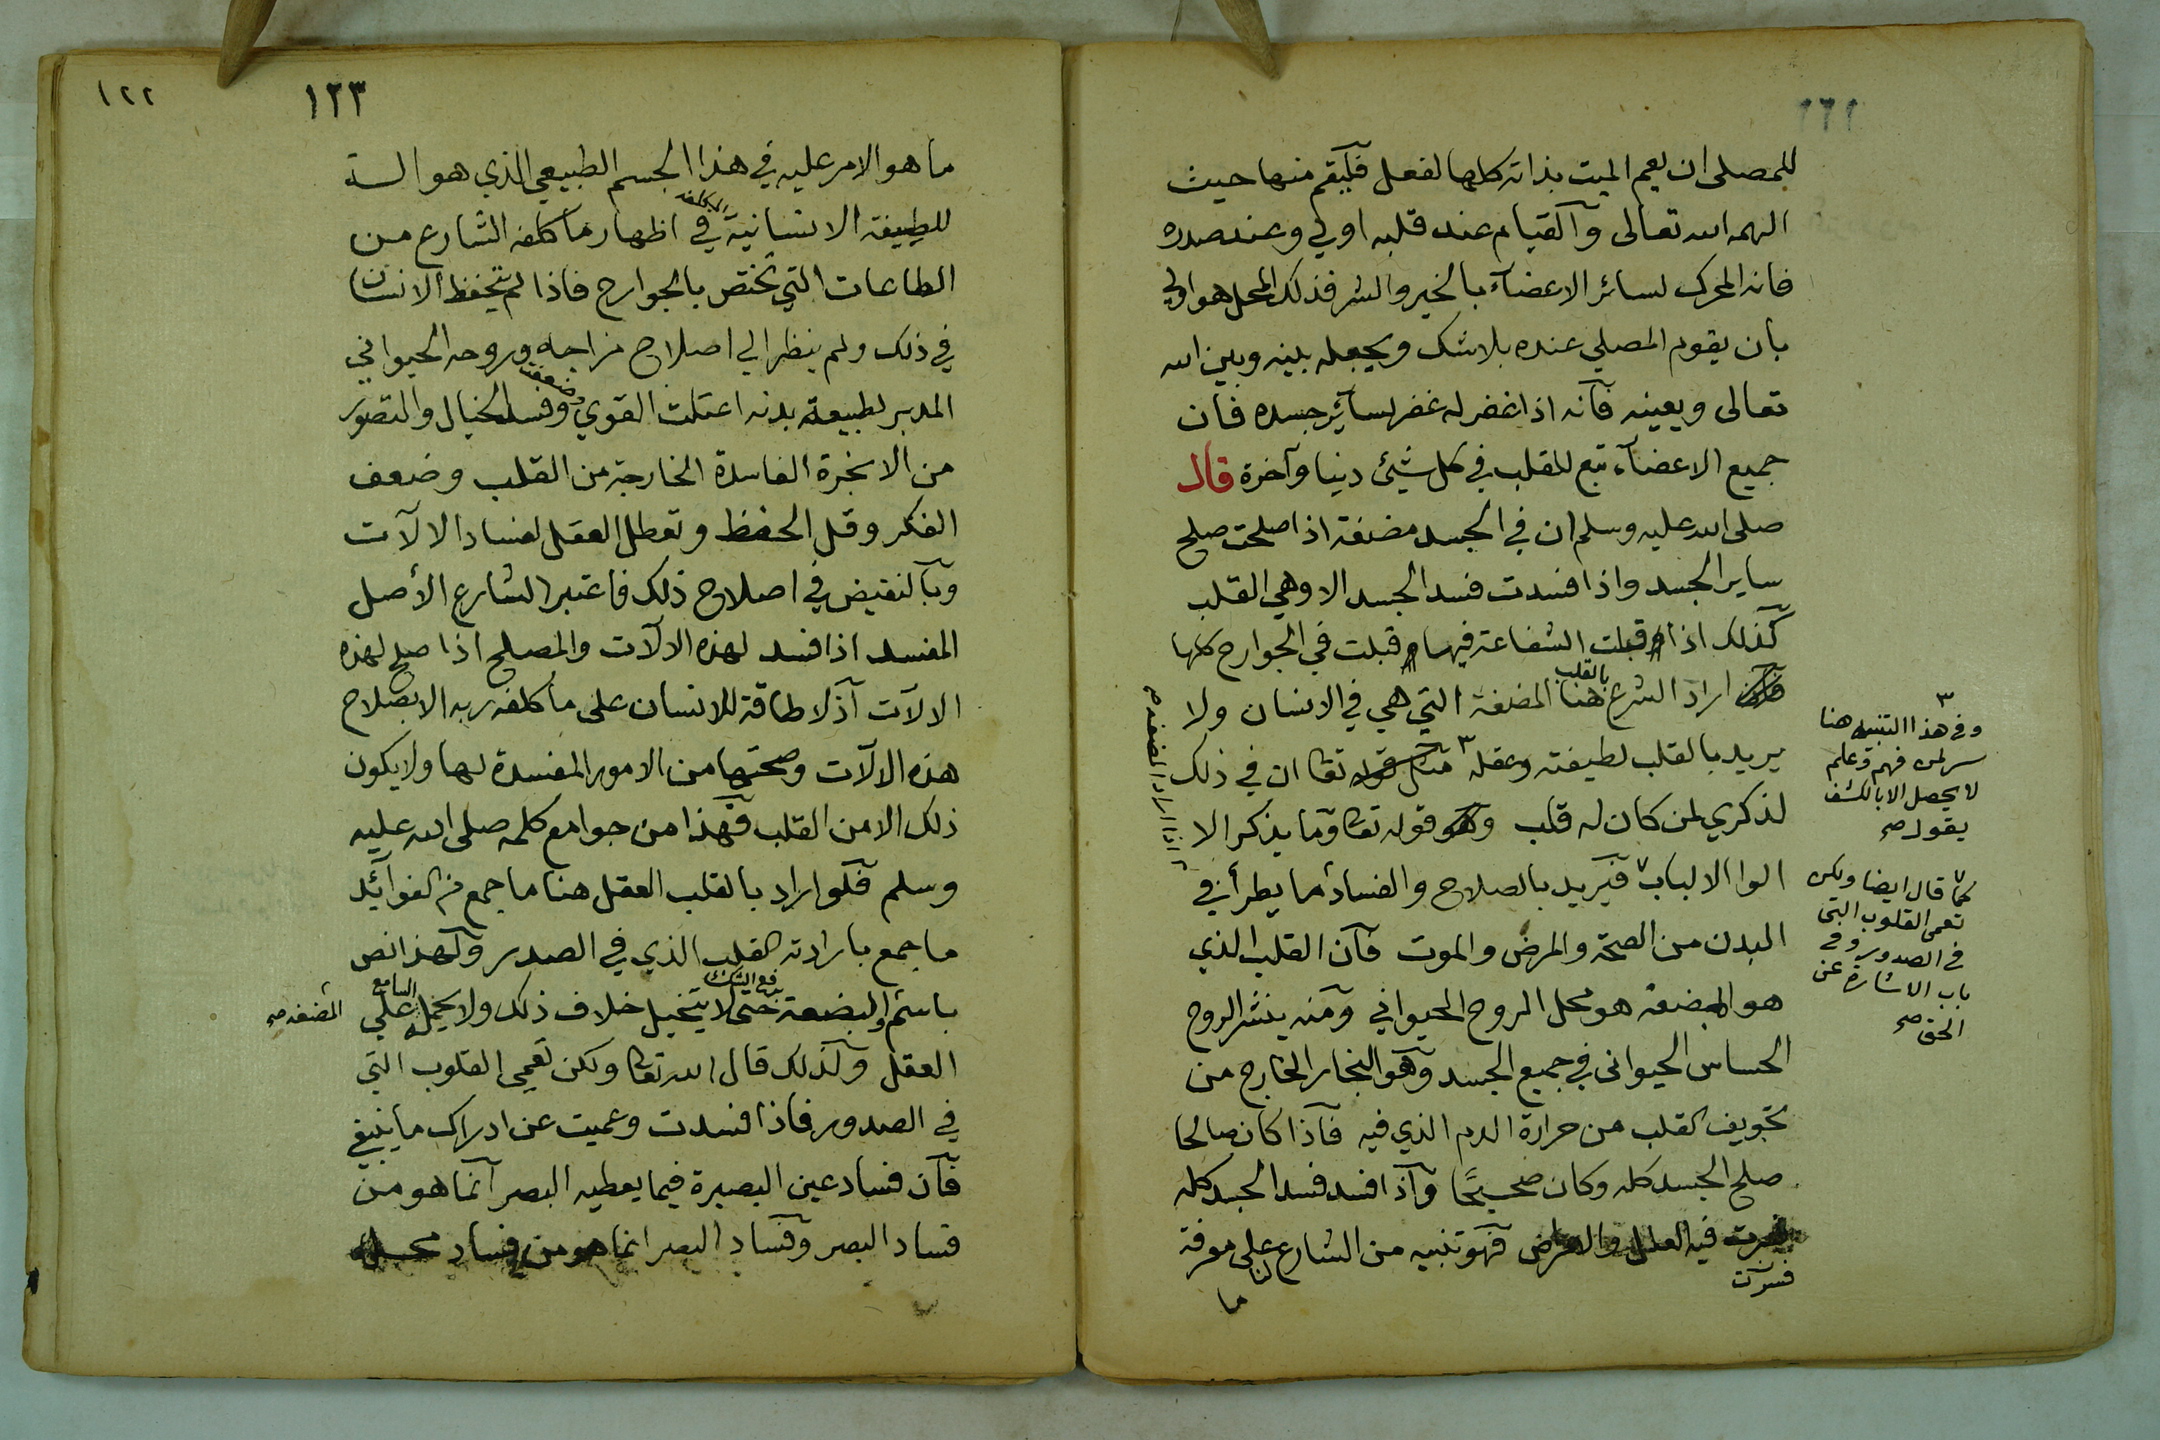 ١٢٢
للمصلى ان يعم الميت بذاته كلها لفعل فليقم منها حيث
الهمه الله تعالى والقيام عند قلبه اولي وعند صدره
فانه المحرك لسائر الاعضاء بالخير والشر فذلك المحل هو اولي
بان يقوم المصلي عنده بلا شك ويجعله بينه وبين الله
تعالى ويعينه فانه اذا غفر له غفر لسائر جسده فان
جميع الاعضاء تبع للقلب في كل شيئ دنيا وآخرة قال
صلى الله عليه وسلم ان في الجسد مضغة اذا صلحت صلح
ساير الجسد واذا فسدت فسد الجسد الا وهي القلب
كذلك اذا قبلت الشفاعة فيها قبلت في الجوارح كلها
اراد الشرع هنا بالقلب المضغة التي هي في الانسان ولا
يريد بالقلب لطيفته وعقله ٣ تعا ان في ذلك
لذكري لمن كان له قلب وهو قوله تعا وما يذكر الا
الوا الالباب فيريد بالصلاح والفساد ما يطرأ في
البدن من الصحة والمرض والموت فان القلب الذي
هو المضغة هو محل الروح الحيواني ومنه ينشر الروح
الحساس الحيوانى في جميع الجسد وهو البخار الخارج من
تجويف القلب من حرارة الدم الذي فيه فاذا كان صالحا
صلح الجسد كله وكان صحيحا واذا فسد فسد الجسد كله
فسرت فيه العلل والامراض فهو تنبيه من الشارع لنا على معرفة
فسرت
ما
٣
وفي هذا التنبيه هنا
سر لمن فهم وعلم
لا يحصل الا بالكشف
يقول صح
كما قال ايضا ولكن
تعمى القلوب التى
في الصدور وفي
باب الاشارة عن
الحق صح
١٢٢
١٢٣
ما هو الامر عليه في هذا الجسم الطبيعي الذي هو الة
للطيفة الانسانية المكلفة في اظهار ما كلفه الشارع من
الطاعات التي تختص بالجوارح فاذا لم يتحفظ الانسان
في ذلك ولم ينظر الي اصلاح مزاجه وروحه الحيواني
المدبر لطبيعة بدنه اعتلت القوي وضعفت وفسد الخيال والتصور
من الابخرة الفاسدة الخارجة من القلب وضعف
الفكر وقل الحفظ وتعطل العقل لفساد الالآت
وبالنقيض في اصلاح ذلك فاعتبر الشارع الأصل
المفسد اذا فسد لهذه الالآت والمصلح اذا صلح لهذه
الالآت اذ لا طاقة للانسان على ما كلفه ربه الا بصلاح
هذه الالآت وصحتها من الامور المفسدة لها ولا يكون
ذلك الا من القلب فهذا من جوامع كلمه صلى الله عليه
وسلم فلو اراد بالقلب العقل هنا ما جمع من الفوائد
ما جمع بارادته القلب الذي في الصدر ولهذا نص
باسم المضغة والبضعة لرفع الشك حتى لا يتخيل خلاف ذلك ولا يحمله السامع علي
العقل وكذلك قال الله تعا ولكن تعمي القلوب التي
في الصدور فاذا فسدت وعميت عن ادراك ما ينبغي
فان فساد عين البصيرة فيما يعطيه البصر انما هو من
فساد البصر وفساد البصر انما هو من فساد محله
المضغة صح